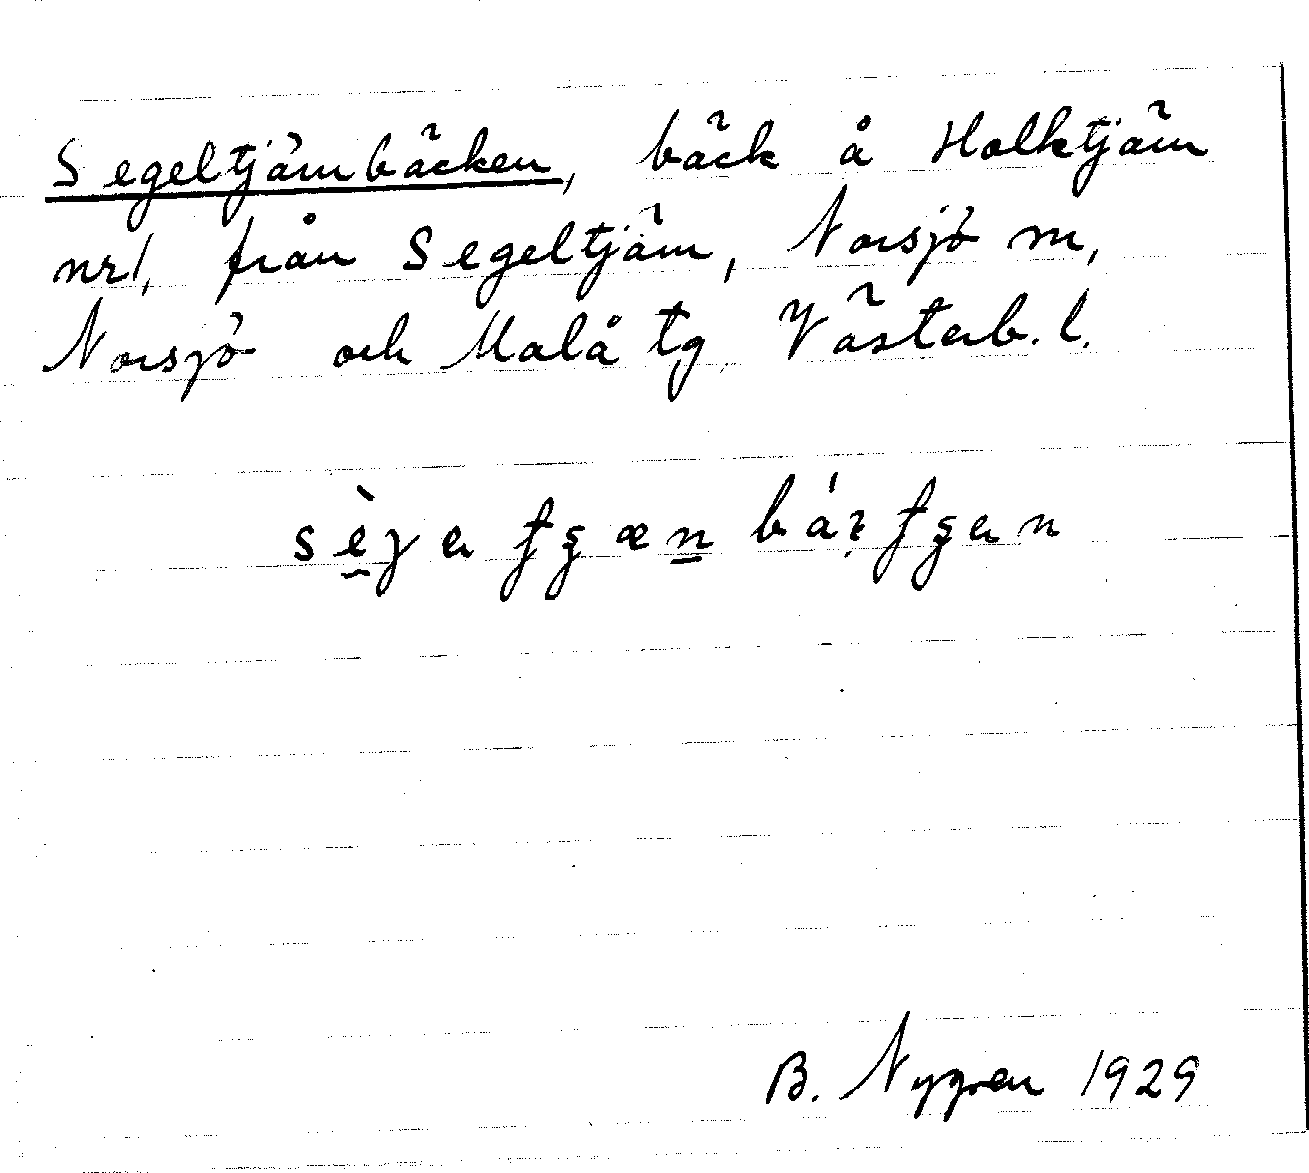 Segeltjärnbäcken, bäck å Holktjärn
nr 1, från Segeltjärn, Norsjö sn,
Norsjö och Malå tg Västerb. l.
B. Nygren 1929